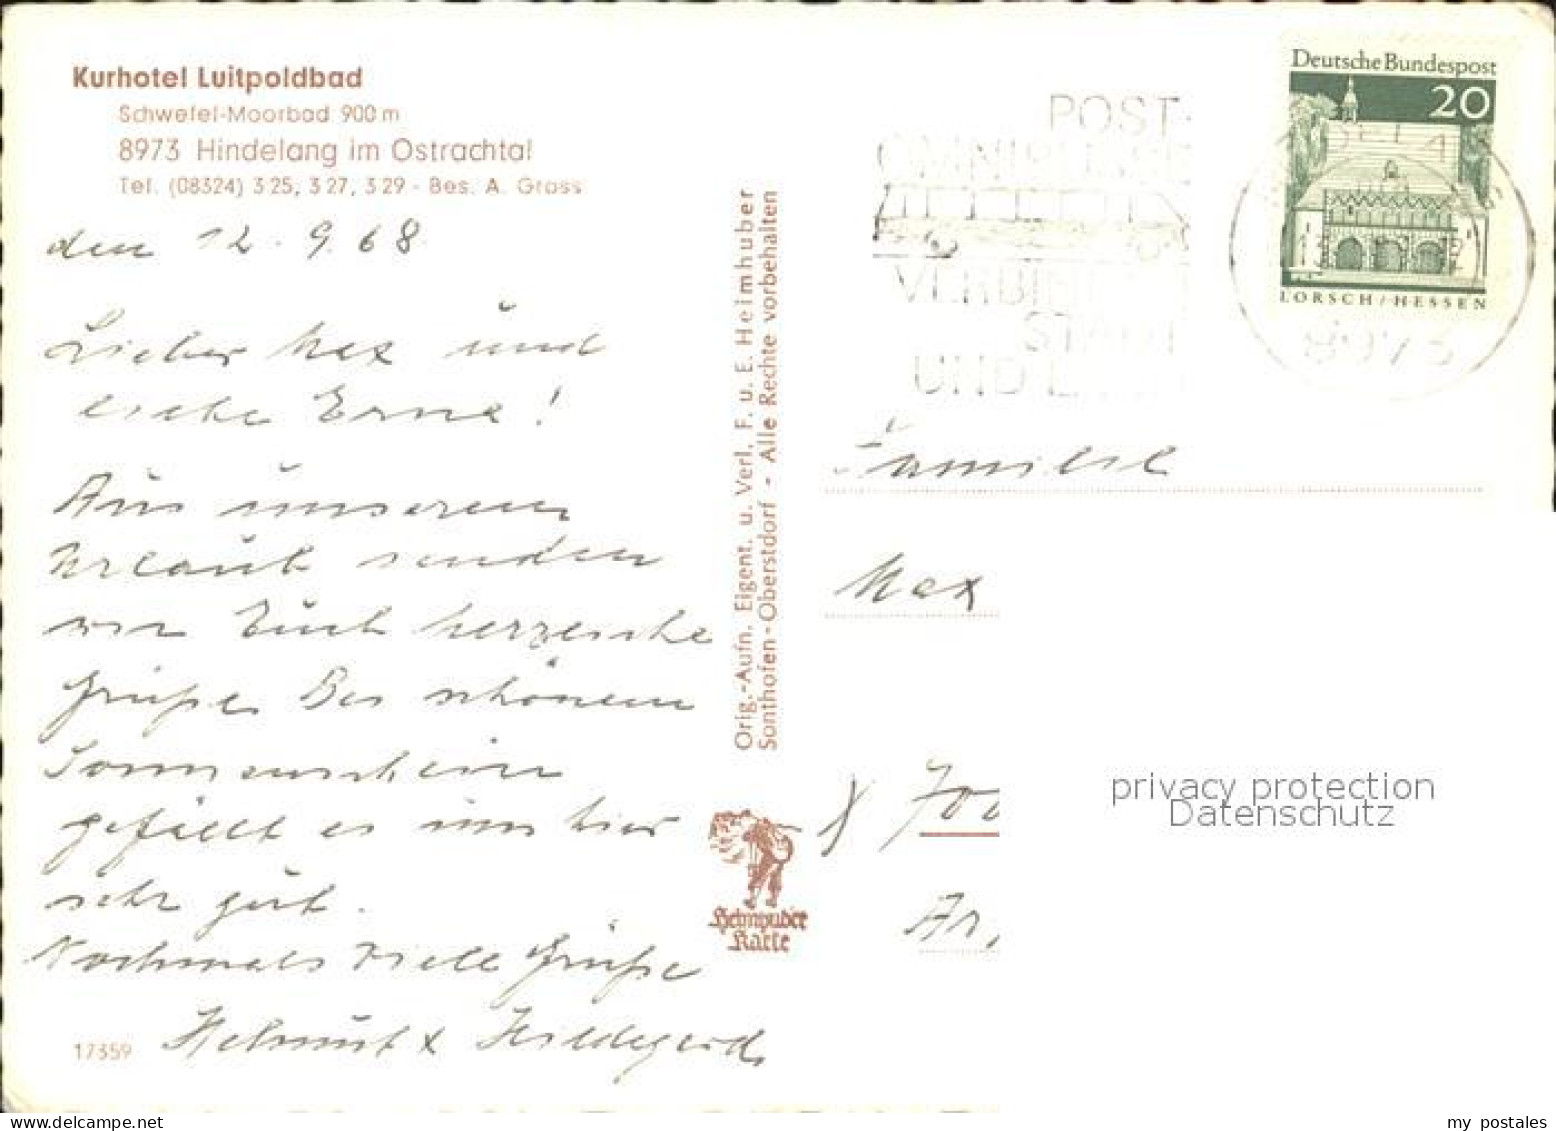 Kurhotel Luitpoldbad
Schwefel-Moorbad 900 m
8973 Hindelang im Ostrachtal
Tel. (08324) 3 25, 3 27, 3 29 - Bes. A. Grass
den 12. 9. 68
Lieber Max und
liebe Erna!
Aus unserem
Urlaub senden
wir Euch herzliche
Grüße. Bei schönem
Sonnenschein
gefällt es uns hier
sehr gut.
Nochmals viele Grüße
Helmut + Hildegard
17359
Orig.-Aufn. Eigent. u. Verl. F. u. E. Heimhuber
Sonthofen-Oberstdorf • Alle Rechte vorbehalten
Heimhuber
Karte
POST-
OMNIBUSSE
VERBINDEN
STADT
UND LAND
Deutsche Bundespost
20
LORSCH/HESSEN
8973
Familie
Max
700
Ar,
privacy protection
Datenschutz
my postales